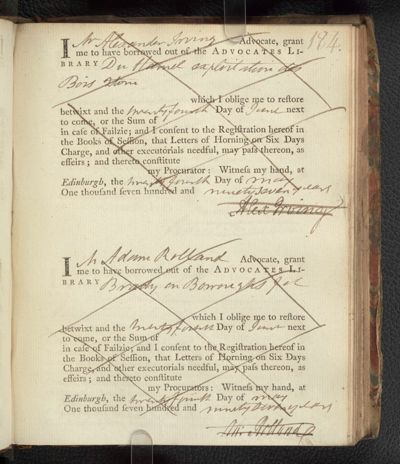 184.
I Mr Alexander Irving Advocate, grant
me to have borrowed out of the ADVOCATES LI-
BRARY Du Hamel exploitation des
Bois
which I oblige me to reſtore
betwixt and the twenty fourth Day of June next
to come, or the Sum of
in caſe of Failzie; and I conſent to the Regiſtration hereof in
the Books of Seſſion, that Letters of Horning on Six Days
Charge, and other executorials needful, may paſs thereon, as
effeirs; and thereto conſtitute
my Procurator: Witneſs my hand, at
Edinburgh, the twenty fourth Day of May
One thouſand ſeven hundred and ninety seven years
Alex Irving
I Mr Adam Rolland Advocate, grant
me to have borrowed out of the ADVOCATES LI-
BRARY Brady on Borroughs fol
which I oblige me to reſtore
betwixt and the twenty fourth Day of June next
to come, or the Sum of
in caſe of Failzie; and I conſent to the Regiſtration hereof in
the Books of Seſſion, that Letters of Horning on Six Days
Charge, and other executorials needful, may paſs thereon, as
effeirs; and thereto conſtitute
my Procurators: Witneſs my hand, at
Edinburgh, the twenty fourth Day of May
One thouſand ſeven hundred and ninety seven years
Rolland